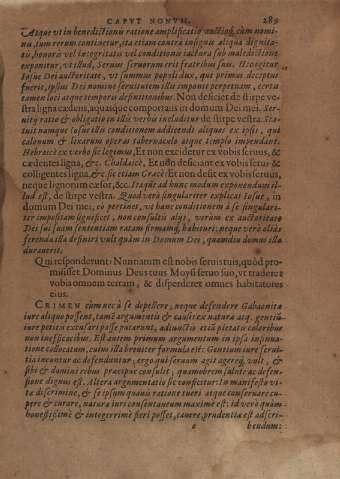 CAPVT NONVM. 289
Atque vt in benedictionũ ratione amplificatio auctióq; cùm nomi-
nũ, tum rerum continetur, ita etiam contra insignis aliqua dignita-
tis, honoris vel integritatis vel conditionis iactura sub maledictione
exponitur, vt illud, Seruus seruorum erit fratribus suis. Et cogitur
Iosue Dei auctoritate, vt summus populi dux, qui primus deceptus
fuerit, ipsius Dei nomine seruitutem illis imponere perpetuam, certa
tamen loci atque temporis definitionibus. Non deficiet de stirpe ve-
stra ligna cædens, aquásque comportans in domum Dei mei. Ser-
uitutis ratio & obligatio in illis verbis includitur de stirpe vestra. Sta-
tuit namque Iosue illis conditionem addicendi aliquos ex ipsis, qui
calonum & lixarum operas tabernaculo atque templo impendant.
Hebraicè ex verbo sic legimus, Et non excidetur ex vobis seruus, &
cædentes ligna, &c. Chaldaicè, Et non deficiant ex vobis seruus &
colligentes ligna, &c. sic etiam Græcè: Et non desit ex vobis seruus,
neque lignorum cæsor, &c. Itaque ad hunc modum exponendum il-
lud est, de stirpe vestra. Quod verò singulariter explicat Iosue, in
domum Dei mei, eò pertinet, vt hanc conditionem à se singulari-
ter impositam significet, non consultis aliis, verùm ex auctoritate
Dei sui suam sententiam ratam firmamq; habituri: neque verò alias
ferenda illa definiri vult quàm in Domum Dei, quamdiu domus illa
durauerit.
Qui responderunt: Nontiatum est nobis seruis tuis, quòd pro-
misisset Dominus Deus tuus Moysi seruo suo, vt traderet
vobis omnem terram, & disperderet omnes habitatores
eius.
CRIMEN cùm nec à se depellere, neque defendere Gabaonitæ
iure aliquo possent, tamē argumentis & causis ex natura acq. gentiũ
iure petitis excusari posse putarunt, adiunctis etiã pietatis coloribus
non inefficacibus. Est autem primum argumentum in ipsa insinua-
tione collocatum, cuius illa breuiter formula est: Gentium iure serui-
tia ineuntur ac defenduntur, ergo qui seruum agit agereq; vult, &
sibi & domini rebus præcipuè consulit, quamobrem salute ac defen-
sione dignus est. Altera argumentatio sic conficitur: In manifesto vi-
tæ discrimine, & se ipsum quauis ratione tueri atque conseruare cu-
pere & curare, naturæ iuri consentaneum maximè est: id verò quàm
honestissimè & integerrimè fieri posset, cauere, prudentiæ est adscri-
bendum: